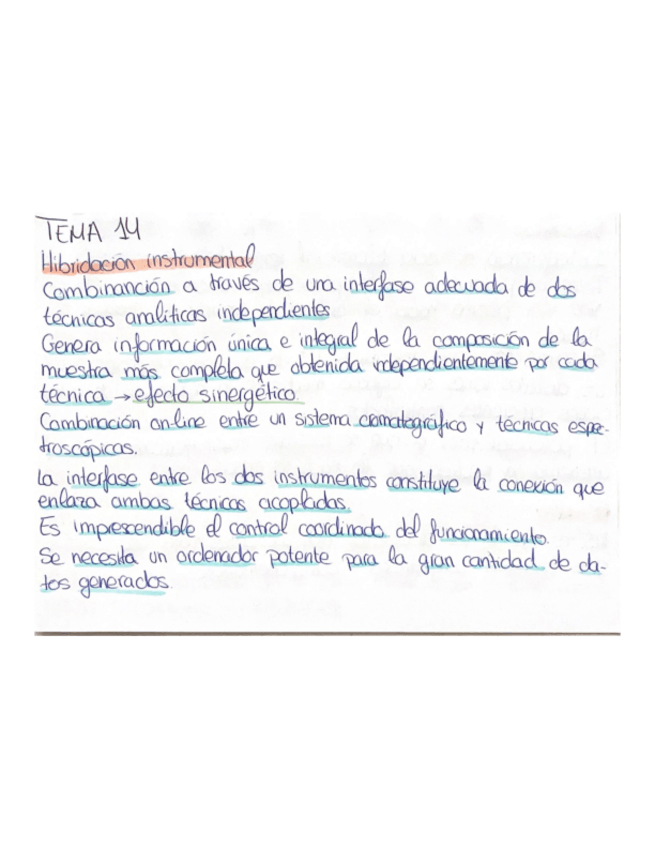 TEMA 14
Hibridación instrumental
Combinanción a través de una interfase adecuada de dos
técnicas analíticas independientes
Genera información única e integral de la composición de la
muestra más completa que obtenida independientemente por cada
técnica → efecto sinergético.
Combinación on-line entre un sistema cromatográfico y técnicas espec-
troscópicas.
La interfase entre los dos instrumentos constituye la conexión que
enlaza ambas técnicas acopladas.
Es imprescendible el control coordinado del funcionamiento.
Se necesita un ordenador potente para la gran cantidad de da-
tos generados.